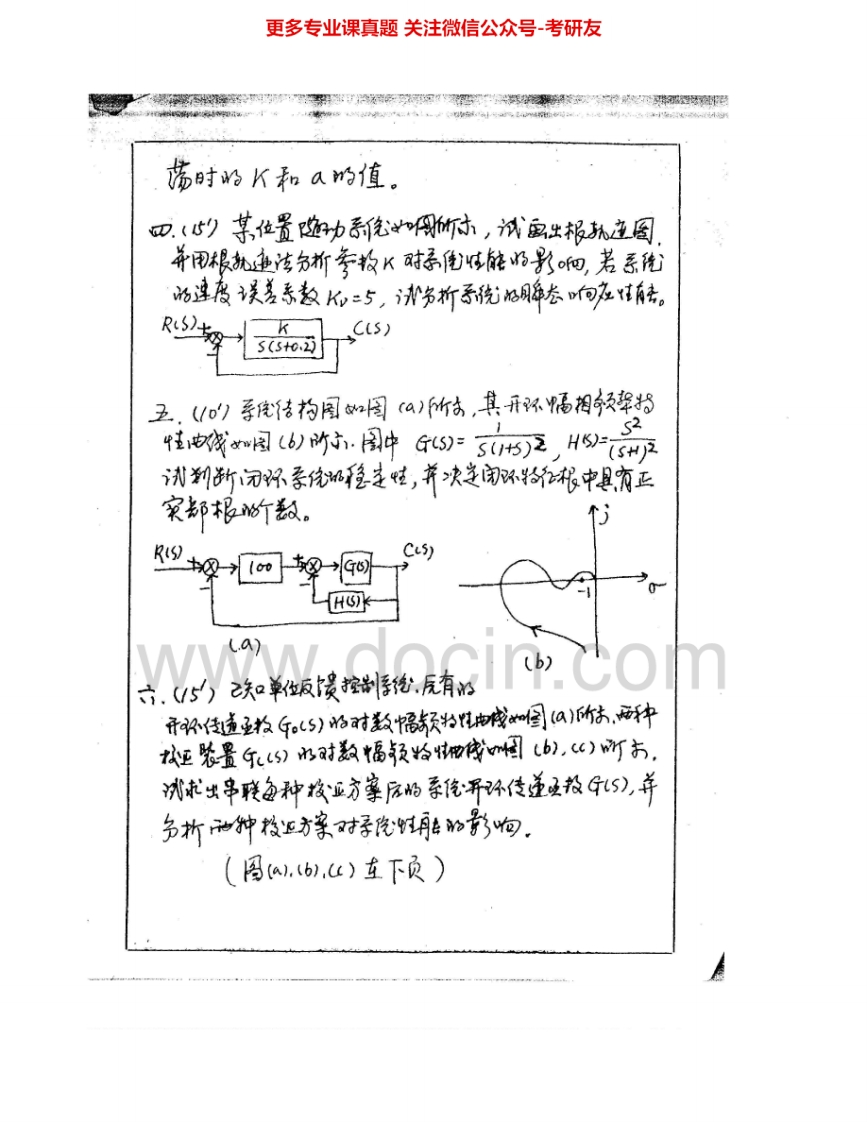 更多专业课真题 关注微信公众号-考研友
荡时的K和a的值。
四.(15') 某位置随动系统如图所示,试画出根轨迹图,
并用根轨迹法分析参数K对系统性能的影响,若系统
的速度误差系数 Kv=5, 试分析系统的瞬态响应性能。
R(S) + - K / S(S+0.2) C(S)
五.(10') 系统结构图如图(a)所示,其开环幅相频率特
性曲线如图(b)所示.图中 G(S)= 1 / S(1+S)2, H(S)= S2 / (S+1)2
试判断闭环系统的稳定性,并决定闭环特征根中具有正
实部根的个数。
R(S) + - 100 + - G(S) C(S)
H(S)
j
-1 σ
(a)
(b)
www.docin.com
六.(15') 已知单位反馈控制系统.原有的
开环传递函数G0(S)的对数幅频特性曲线如图(a)所示,两种
校正装置Gc(S)的对数幅频特性曲线如图(b),(c)所示.
试求出串联每种校正方案后的系统开环传递函数G(S),并
分析两种校正方案对系统性能的影响.
(图(a),(b),(c)在下页)